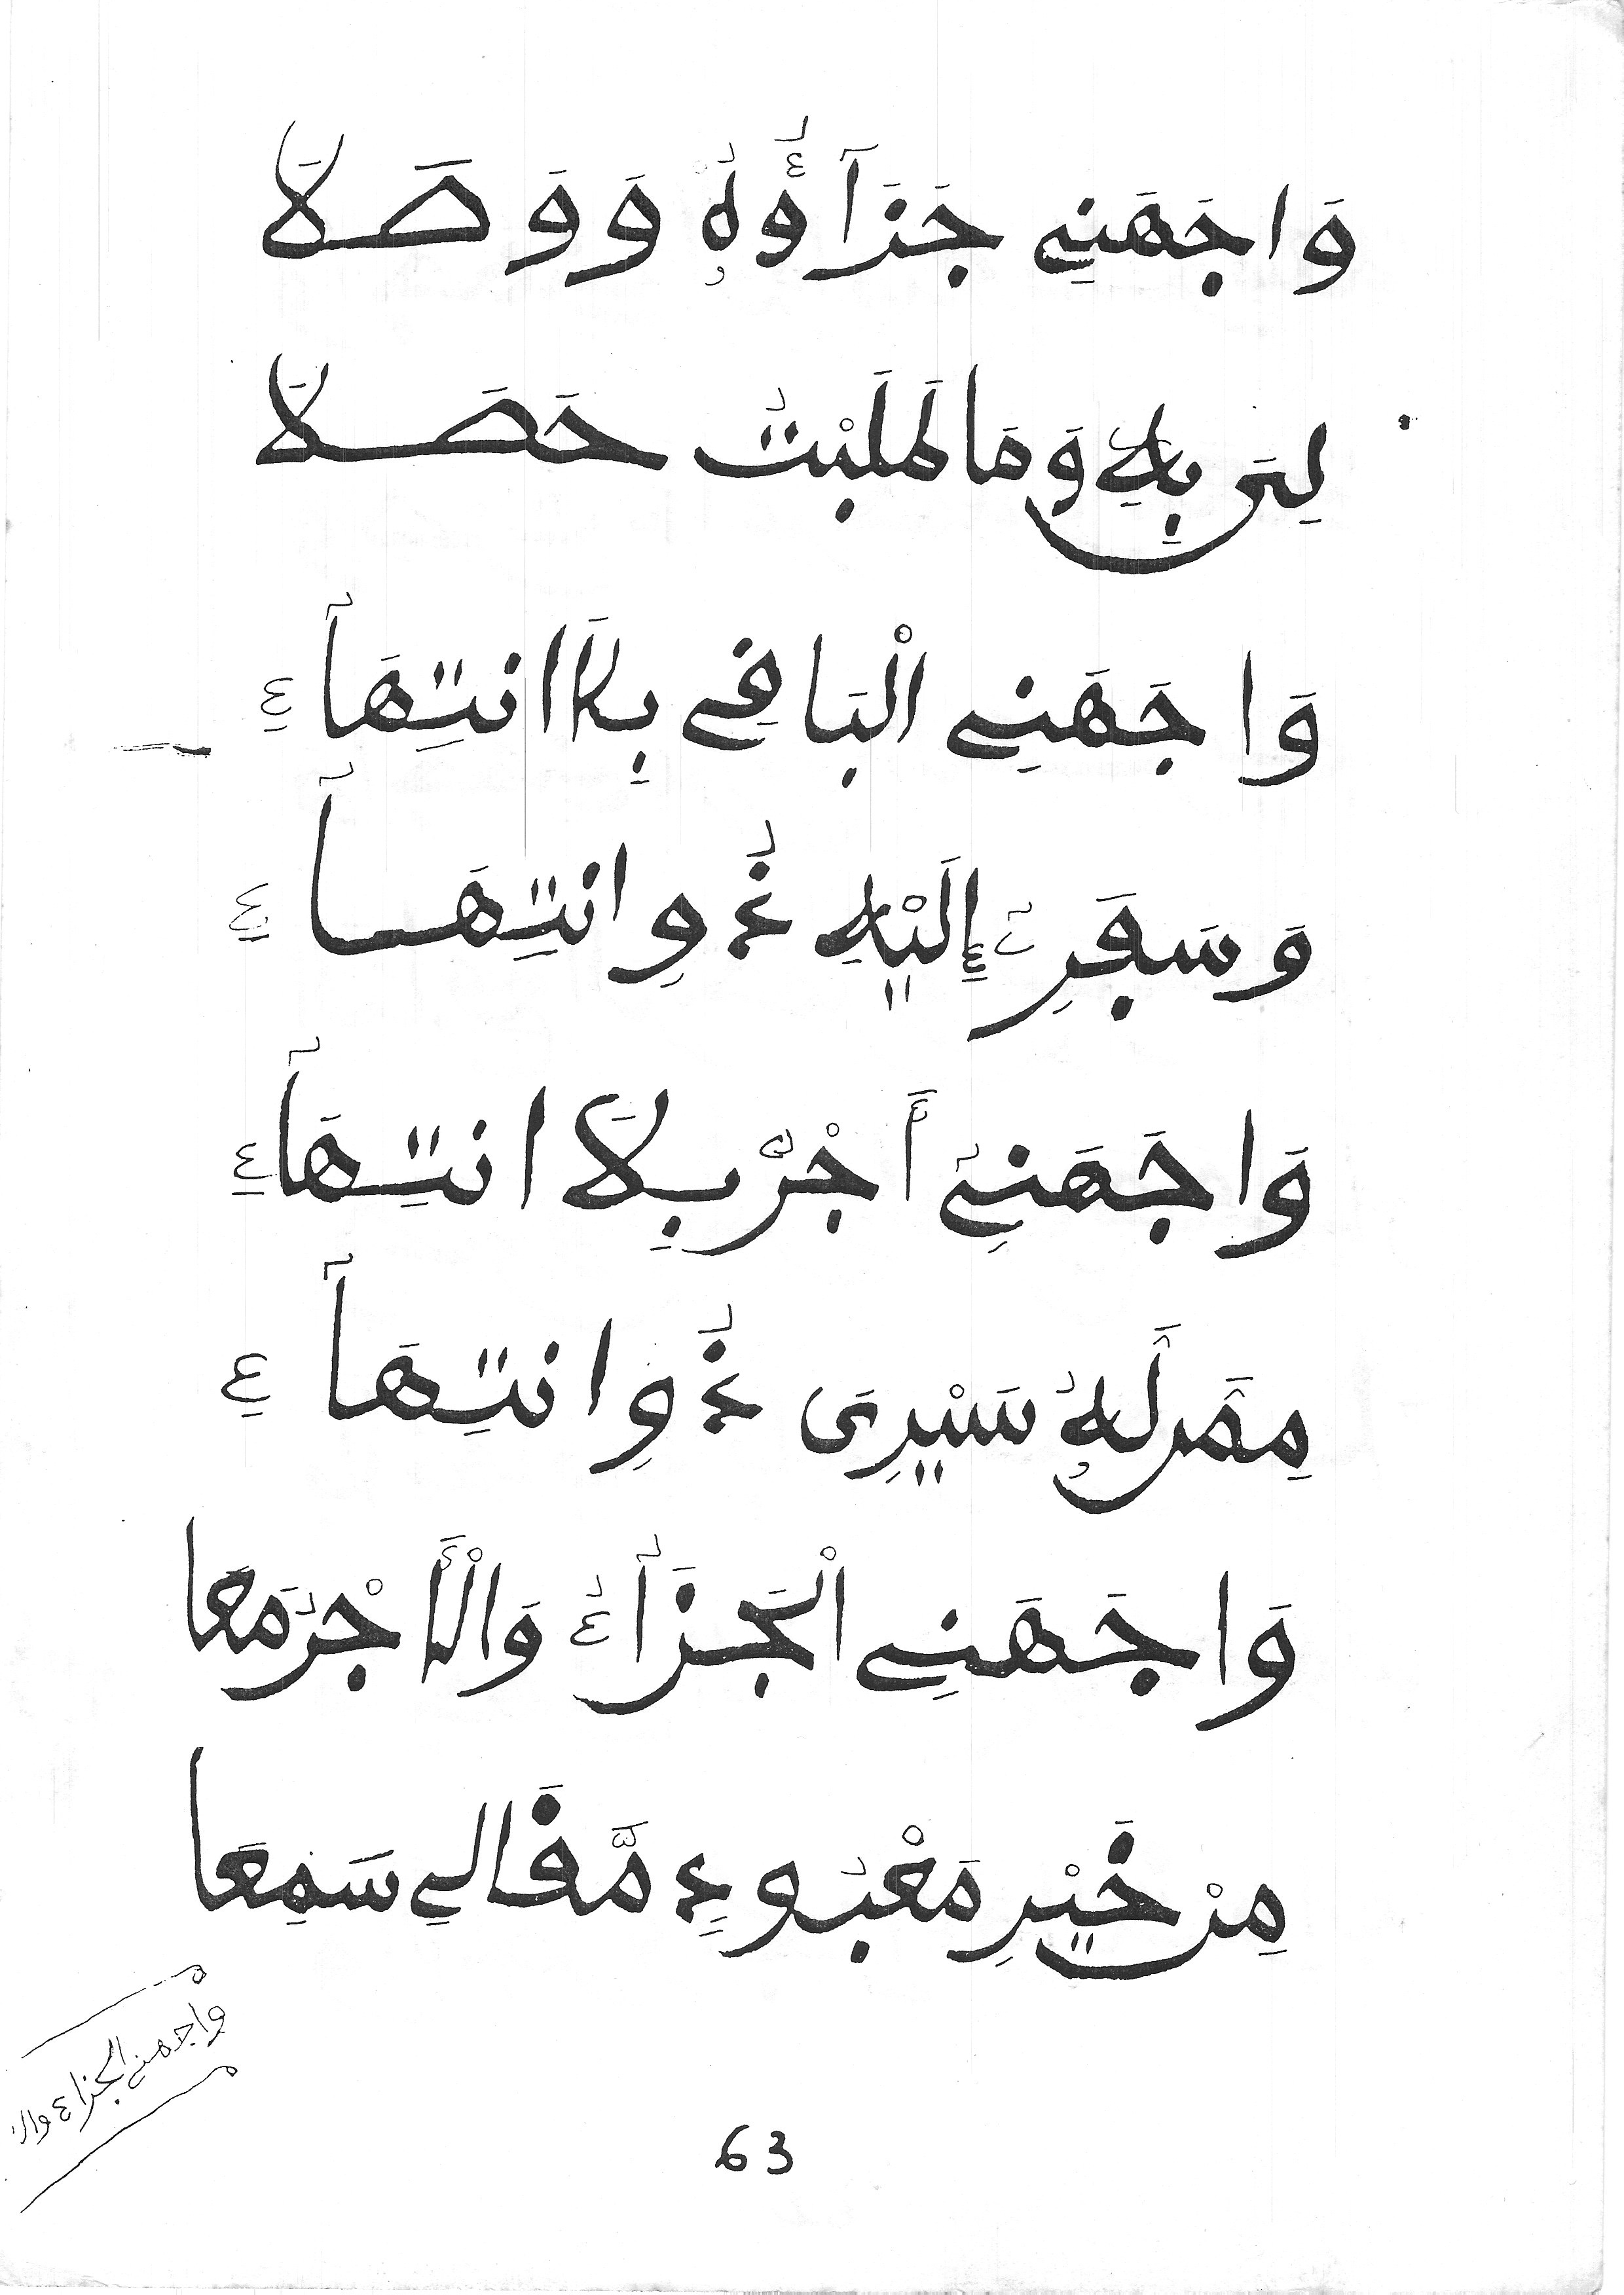 وَاجَهَنِي جَزَآؤُهُ وَوَصَلَا
لِي بِهِ وَمَا طَلَبْتُ حَصَلَا
وَاجَهَنِي الْبَاقِي بِلَا انتِهَآءِ
وَسَفَرِي إِلَيْهِ ذُو انتِهَآءِ
وَاجَهَنِي أَجْرٌ بِلَا انتِهَآءِ
مِمَّن لَهُ سَيْرِى ذُو انتِهَآءِ
وَاجَهَنِي الْجَزَآءُ وَالْأَجْرُ مَعَا
مِنْ خَيْرِ مَعْبُودٍ مَّقَالِي سَمِعَا
واجهني الجزاء والا
63